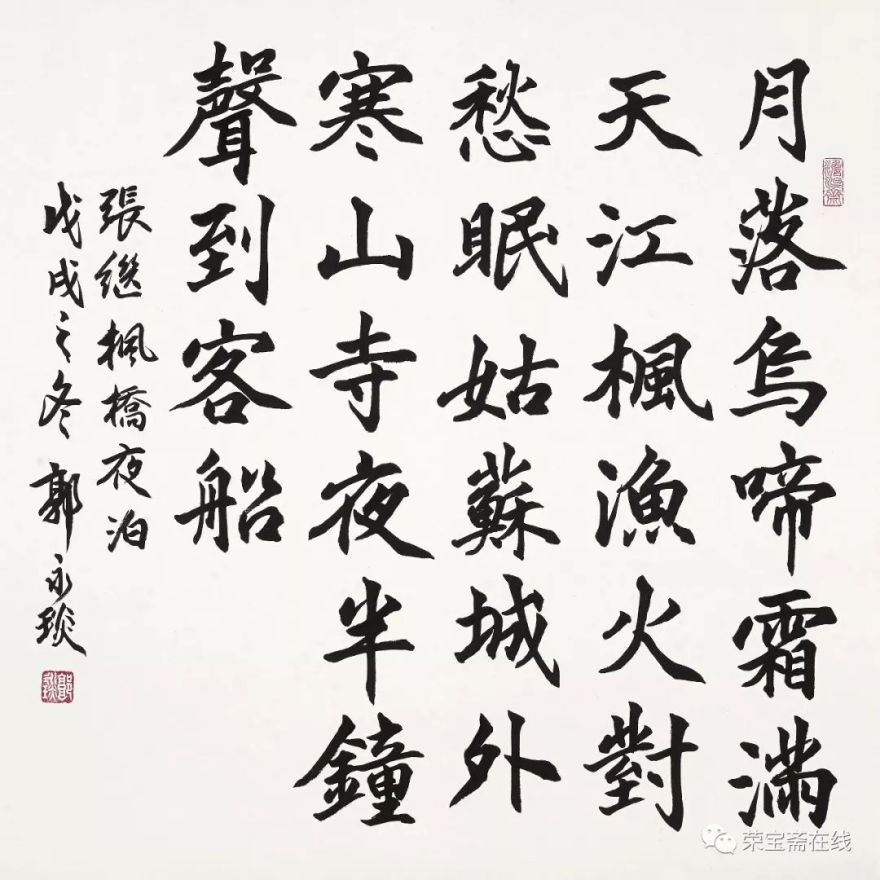 月落烏啼霜滿
天江楓漁火對
愁眠姑蘇城外
寒山寺夜半鐘
聲到客船
張繼楓橋夜泊
戊戌之冬郭永琰
荣宝斋在线